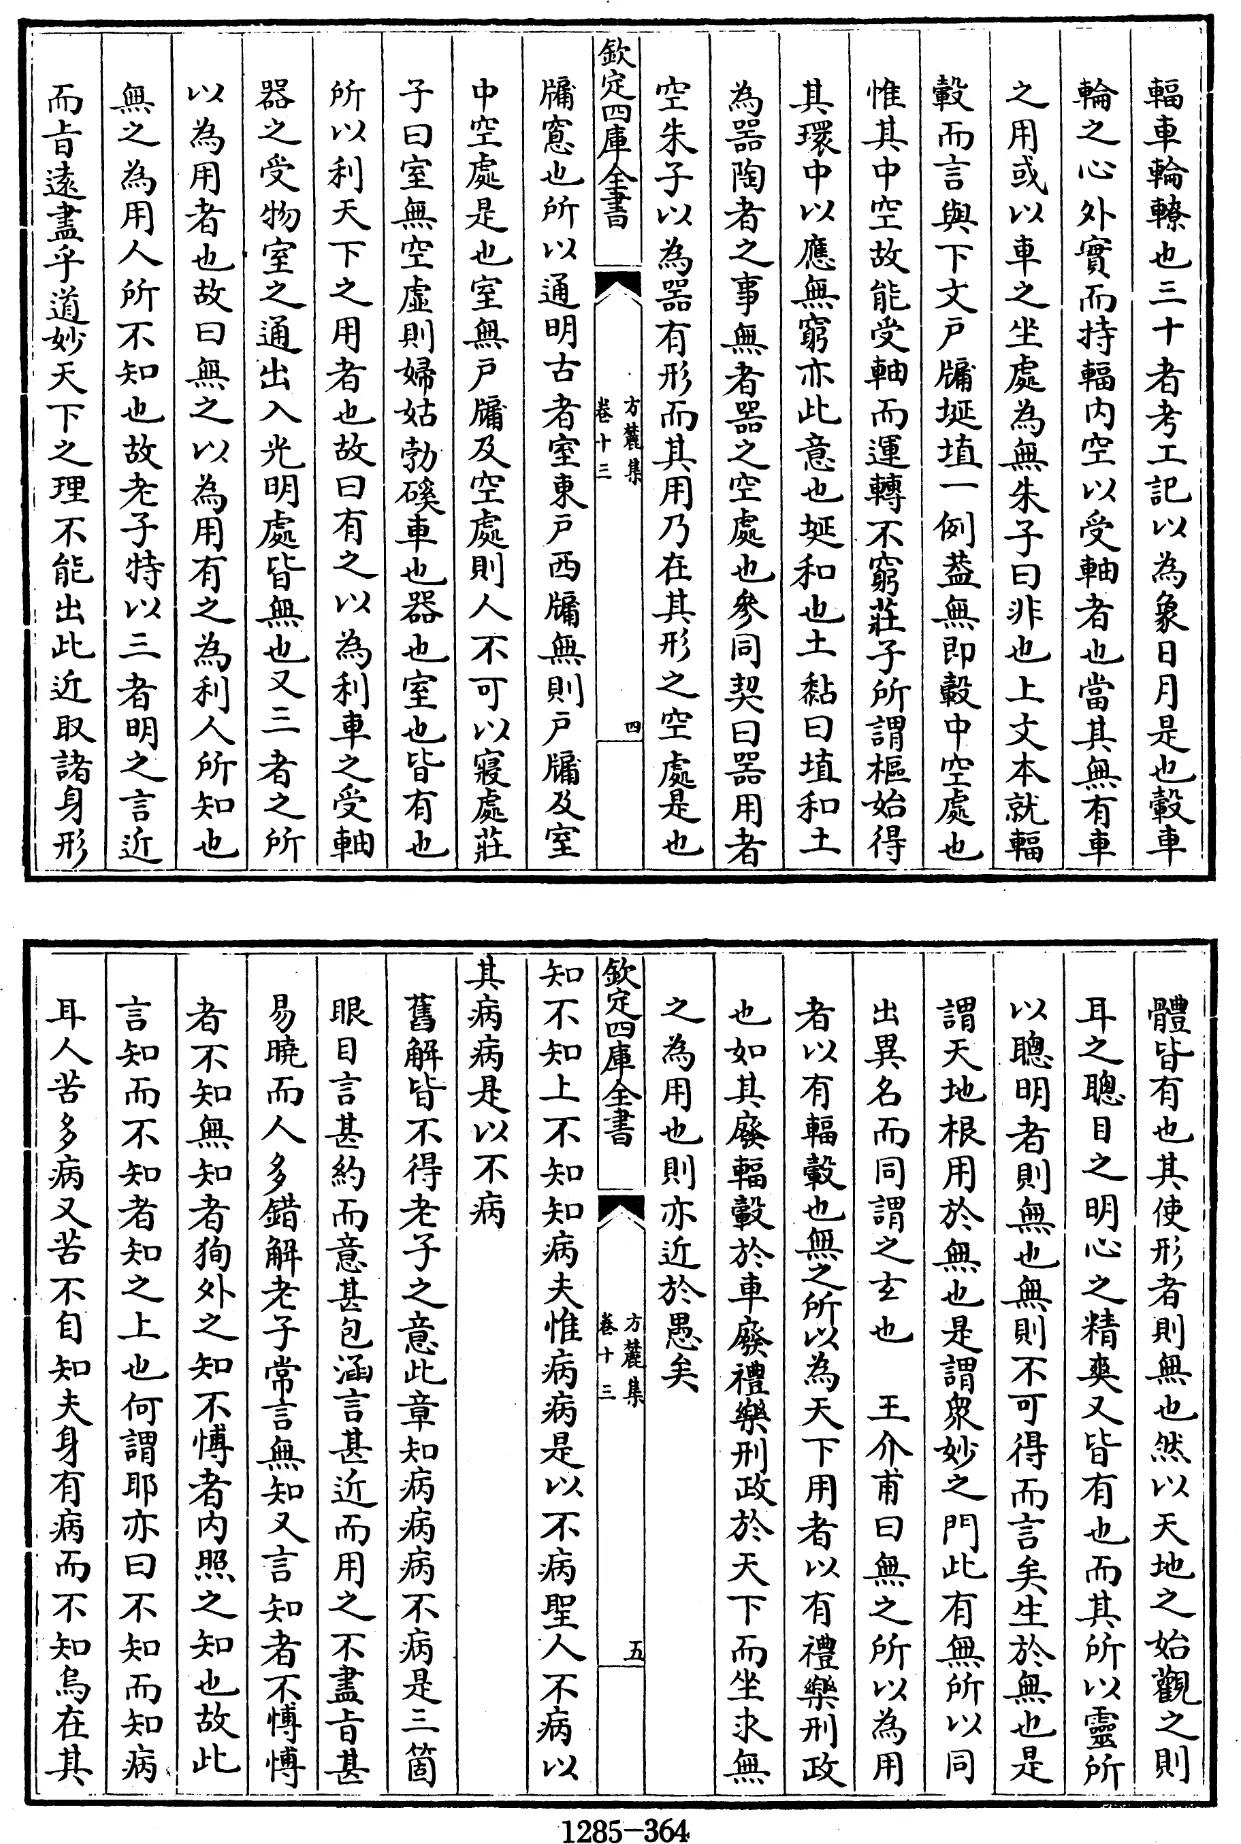 輻車輪轑也三十者考工記以為象日月是也轂車
輪之心外實而持輻内空以受軸者也當其無有車
之用或以車之坐處為無朱子曰非也上文本就輻
轂而言與下文戶牖埏埴一例葢無即轂中空處也
惟其中空故能受軸而運轉不窮莊子所謂樞始得
其環中以應無窮亦此意也埏和也土黏曰埴和土
為器陶者之事無者器之空處也參同契曰器用者
空朱子以為器有形而其用乃在其形之空處是也
欽定四庫全書
方麓集
卷十三
四
牖窻也所以通明古者室東戶西牖無則戶牖及室
中空處是也室無戶牖及空處則人不可以寢處莊
子曰室無空虛則婦姑勃磎車也器也室也皆有也
所以利天下之用者也故曰有之以為利車之受軸
器之受物室之通出入光明處皆無也又三者之所
以為用者也故曰無之以為用有之為利人所知也
無之為用人所不知也故老子特以三者明之言近
而㫖遠盡乎道妙天下之理不能出此近取諸身形
體皆有也其使形者則無也然以天地之始觀之則
耳之聰目之明心之精爽又皆有也而其所以靈所
以聰明者則無也無則不可得而言矣生於無也是
謂天地根用於無也是謂衆妙之門此有無所以同
出異名而同謂之𤣥也 王介甫曰無之所以為用
者以有輻轂也無之所以為天下用者以有禮樂刑政
也如其廢輻轂於車廢禮樂刑政於天下而坐求無
之為用也則亦近於愚矣
欽定四庫全書
方麓集
卷十三
五
知不知上不知知病夫惟病病是以不病聖人不病以
其病病是以不病
舊解皆不得老子之意此章知病病病不病是三箇
眼目言甚約而意甚包涵言甚近而用之不盡㫖甚
易曉而人多錯解老子常言無知又言知者不愽愽
者不知無知者狥外之知不愽者内照之知也故此
言知而不知者知之上也何謂耶亦曰不知而知病
耳人苦多病又苦不自知夫身有病而不知烏在其
1285-364